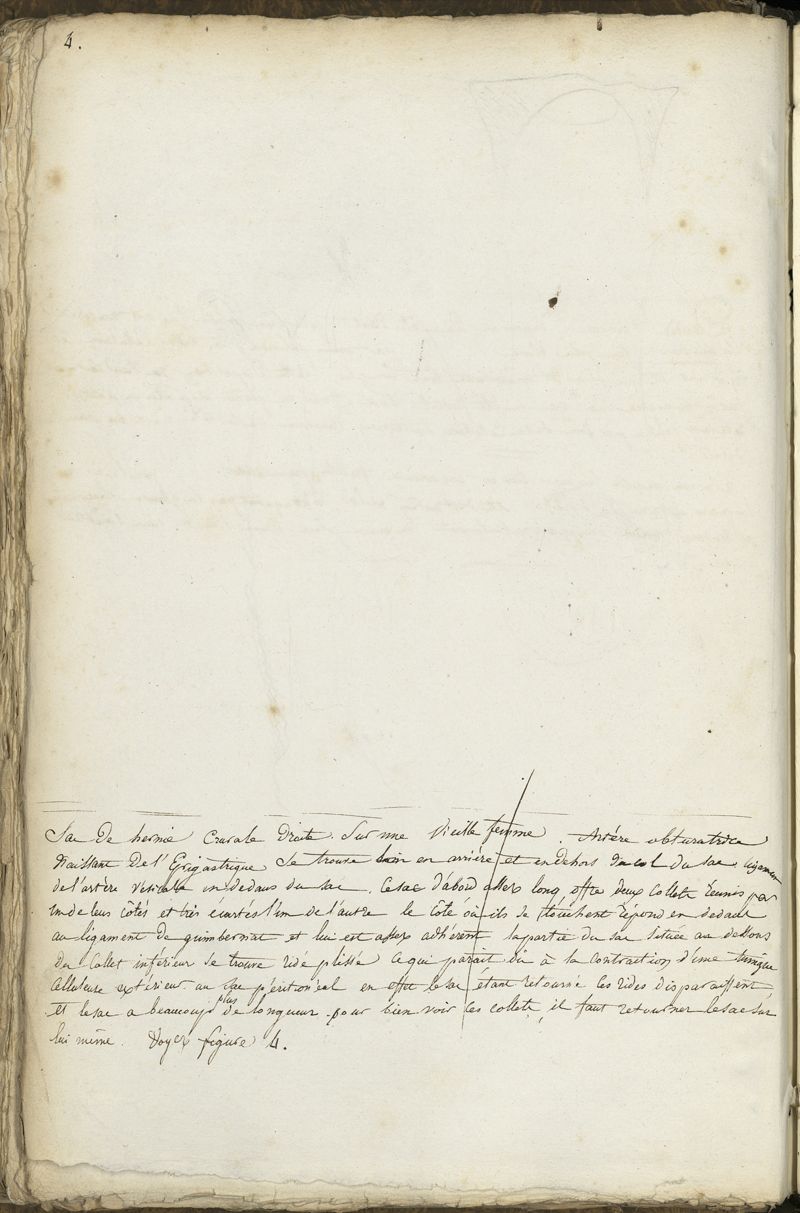 4.
Sac de hernie crurale droite. Sur une vieille femme. Artère obturatrice
Naissant de l'Epigastrique se trouve en arrière et en dehors du col du sac, ligament
de l'artère vésicale en dedans du sac. Ce sac d'abord assez long offre deux collets reunis par
un de leurs côtés et très écartés l'un de l'autre le côté où ils se touchent répond en dedans
au ligament de guimbernat et lui est assez adhérent la partie du sac située au dessous
du collet inférieur se trouve ride plissée ce qui paraît dû à la contraction d'une tunique
celluleuse extérieure au sac péritonéal en effet le sac étant retourné les rides disparaissent
et le sac a beaucoup plus de longueur. pour bien voir les collets, il faut retourner le sac sur
lui même. Voyez figure 4.